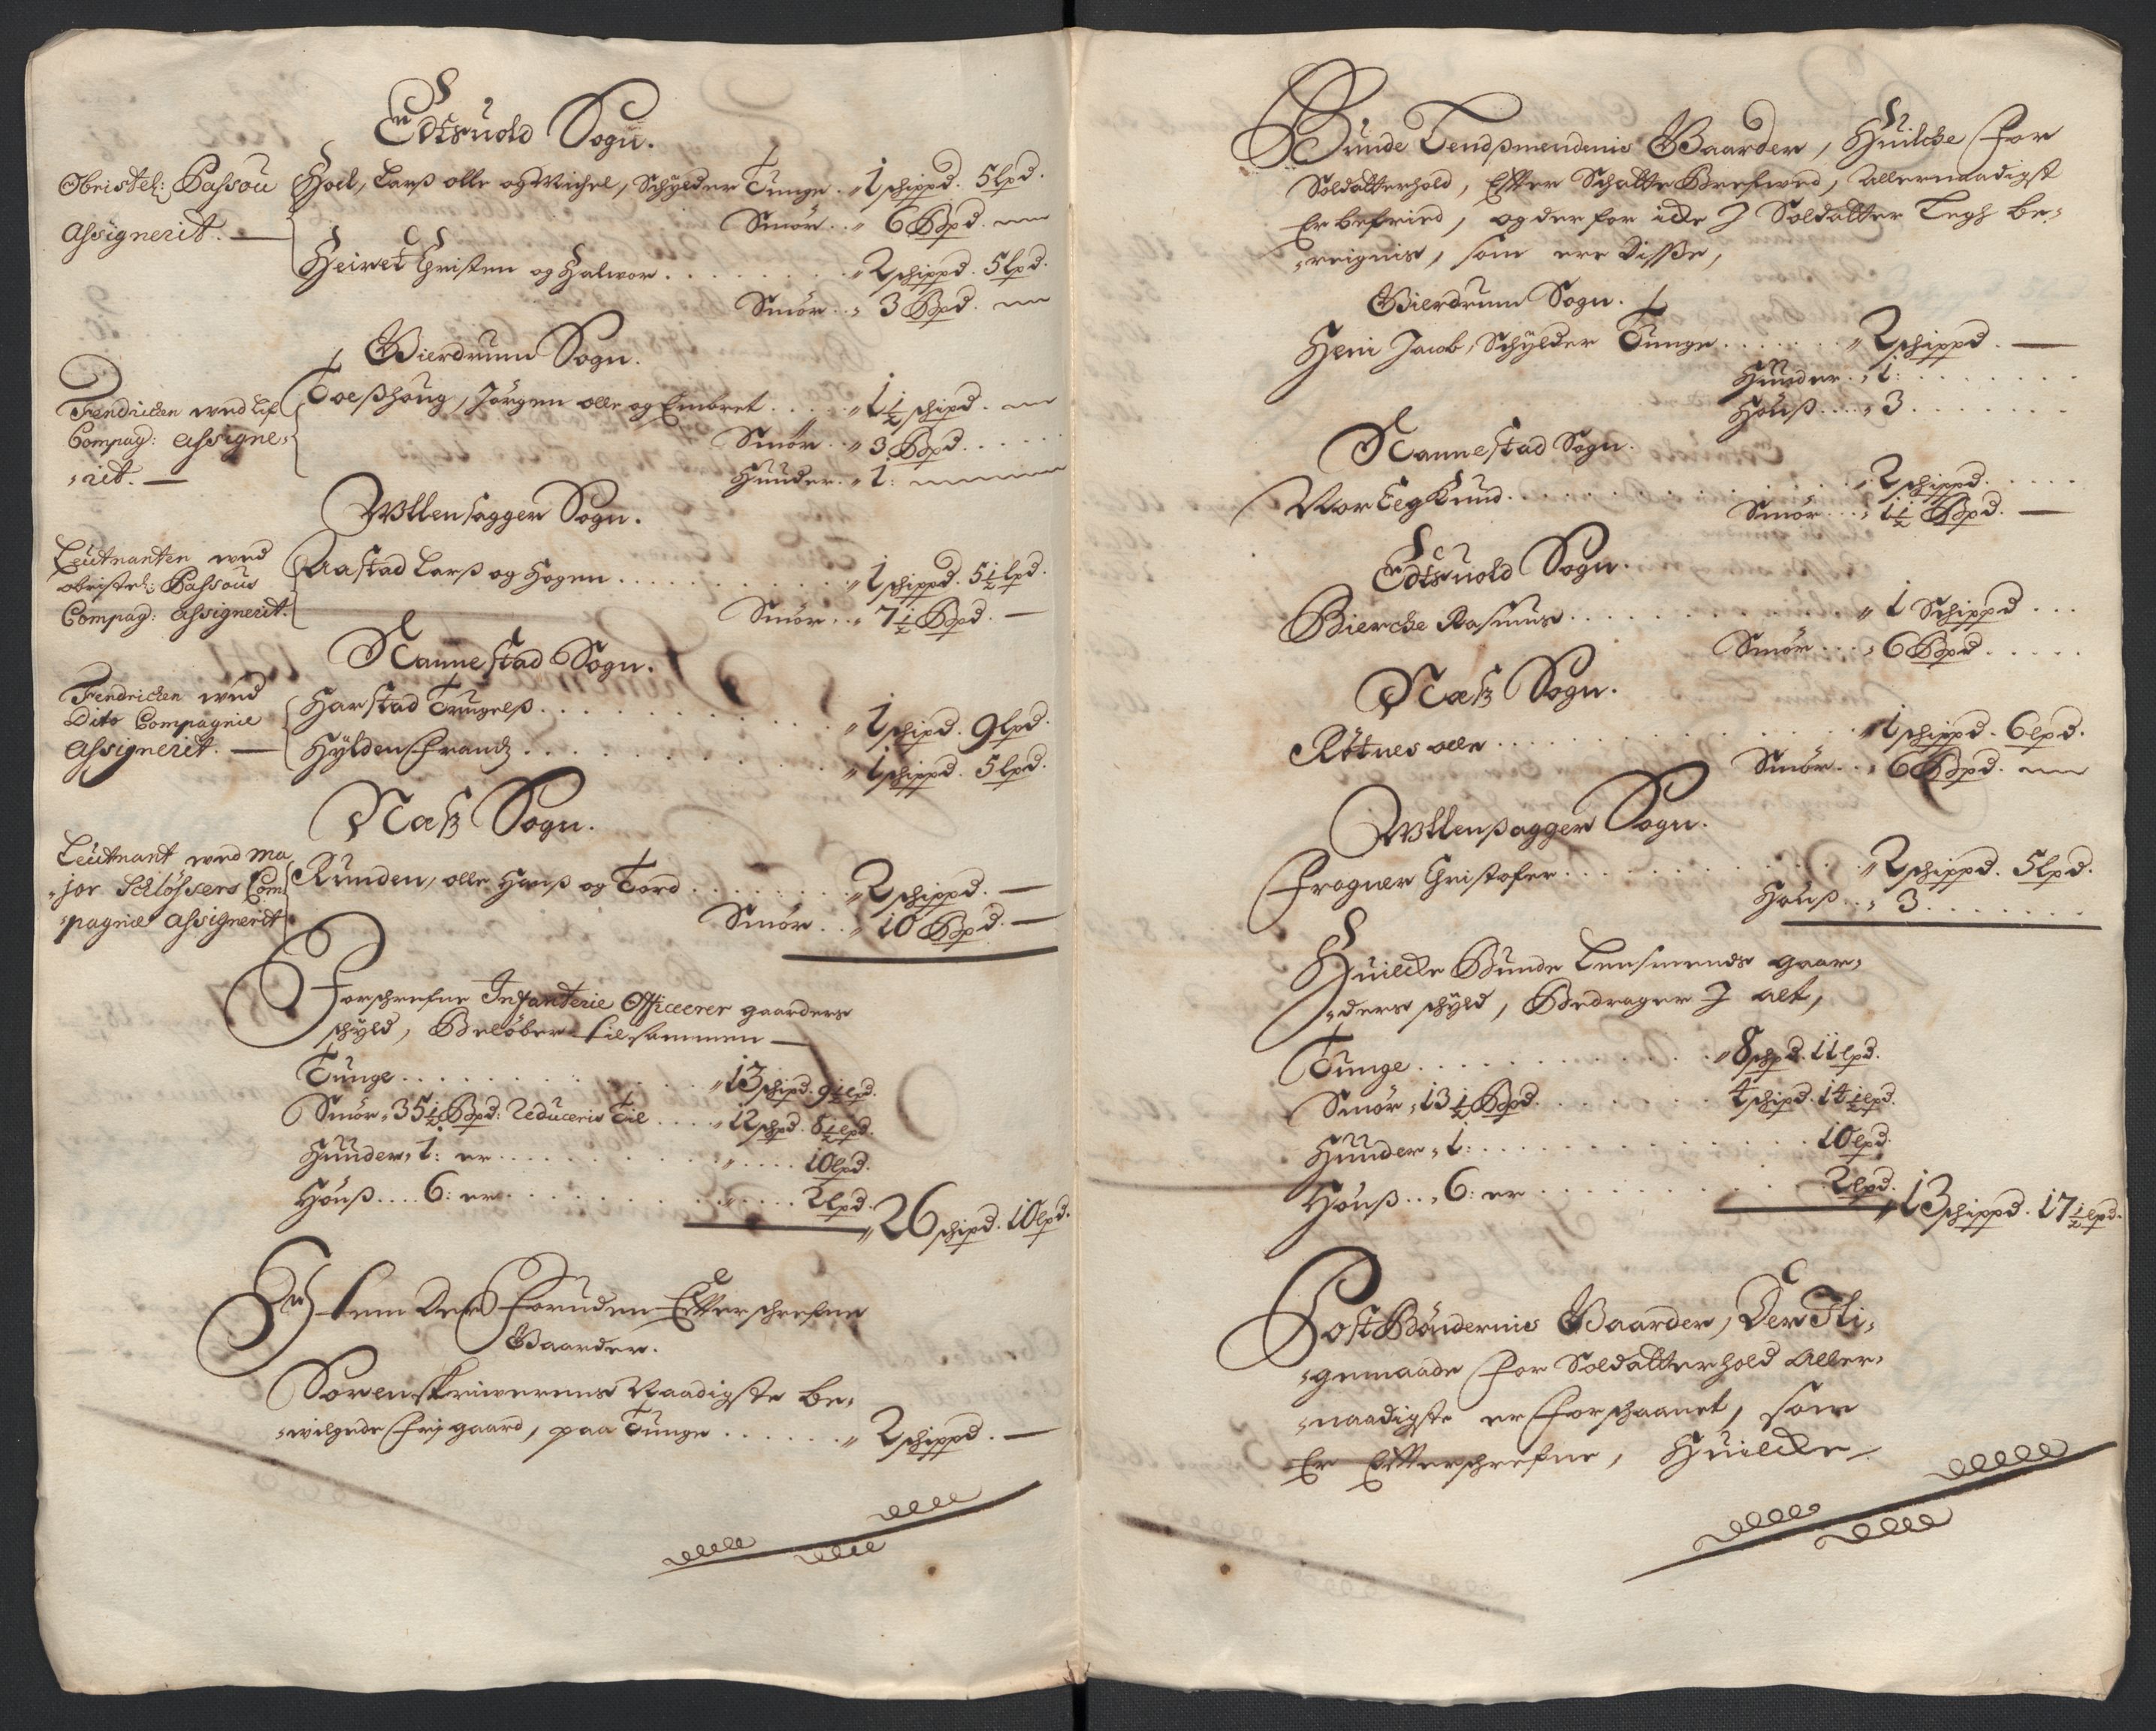 Edtsuold Sogn.
Obristel: Bassou
Assignerit. —
Hoel, Larß olle og Michel, Schylder Tunge. „ 1 schippd. 5 lpd.
Smør. . „ 6 Bpd.
Heiret Christen og Halvor . . . „ 2 schippd. 5 lpd.
Smør. . „ 3 Bpd.
Gierdrum Sogn.
Fendricken ved Lif
Compag: Assigne-
-rit. —
Toeßhoug, Jørgen olle og Embret . . . „ 1 1/2 schipd.
Smør. . „ 3 Bpd. . . .
Huuder. „ 1:
Wllensagger Sogn.
Leutnanten ved
obristel: Bassous
Compag: Assignerit.
Aastad Larß og Hogen . . . „ 1 schippd. 5 1/2 lpd.
Smør. . „ 7 1/2 Bpd. —
Nannestad Sogn.
Fendricken ved
Dito Compagnie
Assignerit. —
Harstad Trugelß . . . „ 1 schipd. 9 lpd.
Hylden Frandz . . . „ 1 schippd. 5 lpd.
Næß Sogn.
Leutnant ved Ma
-jor Schløssers Com
-pagnie Assignerit
Runden, olle Hanß og Tord . . . „ 2 schippd. —
Smør. . „ 10 Bpd. —
Forschrefne Infanterie Officerer gaarders
schyld, Beløber tilsammen —
Tunge . . . „ 13 schipd. 9 1/2 lpd.
Smør „ 35 1/2 Bpd: Reduceris Til . . . „ 12 schpd. 8 1/2 lpd.
Huuder „ 1: er . . . „ . . . 10 lpd.
Høuß . . . 6: er . . . „ . . . 2 lpd.
„ 26 schipd. 10 lpd.
Item Der Foruden Efterschrefne
Gaarder.
Sorenskriverens Naadigste be-
-vilgede Fri gaard, paa Tunge . . . „ 2 schippd. —
Bunde Lendßmendenis Gaarder, Huilche for
Soldatterhold, Efter Schatte Brefved, Allernaadigst
Er befried, og der for icke J Soldatter Legh be-
-reignis, som ere disse,
Gierdrum Sogn.
Heni Jacob, Schylder Tunge . . . „ 2 schippd. —
Huuder. „ 1: . . .
Høuß . . . „ 3 . . .
Nannestad Sogn.
Nor Eeg Knud . . . „ 2 schippd. . . .
Smør. . „ 1 1/2 Bpd. —
Edtsuold Sogn.
Bierche Rasmus . . . „ 1 Schippd . . .
Smør . . . „ 6 Bpd . . .
Næß Sogn.
Røtnes olle . . . „ 1 schippd. 6 lpd.
Smør. . „ 6 Bpd.
Wllensagger Sogn.
Frogner Christofer . . . „ 2 schippd. 5 lpd.
Høuß. . „ 3 . . .
Huilcke Bunde Lensmends gaar-
-ders schyld, Bedrager J alt,
Tunge . . . „ 8 schpd. 11 lpd.
Smør „ 13 1/2 Bpd . . . 4 schipd. 14 1/2 lpd.
Huuder „ 1: . . . 10 lpd.
Høuß . . „ 6: er . . . 2 lpd.
„ 13 schippd. 17 1/2 lpd.
Post Bøndernis Gaarder, Der Li-
-gemaade for Soldatterhold Aller-
-naadigste er forschaanet, som
Er Efterschrefne, Huilcke